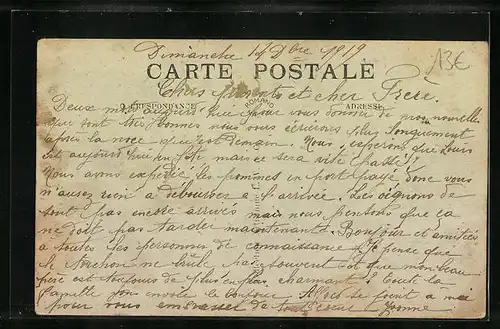 Dimanche 14 Dbre 1919
13€
CARTE POSTALE
Chers parents et cher Frère.
CORRESPONDANCE ADRESSE
Deux mots aujourd'hui pour vous donner de nos nouvelles
que sont très bonnes nous vous écrirons plus longuement
après la noce qui est demain. Nous espérons que Louis
est aujourd'hui en fête mais ce sera vite passé!!
Nous avons expédié les pommes en port payé donc vous
n'aurez rien à débourser à l'arrivée. Les oignons de
sont pas encore arrivés mais nous pensons que ça
ne doit pas tarder maintenant. Bonjour et amitiés
à toutes les personnes de connaissance. Je pense que
le torchon ne brûle pas souvent et que mon beau
père est toujours de plus en plus charmant! Toute la
famille vous envoie le bonjour. se joint à moi
pour vous embrasser de tout cœur Yvonne